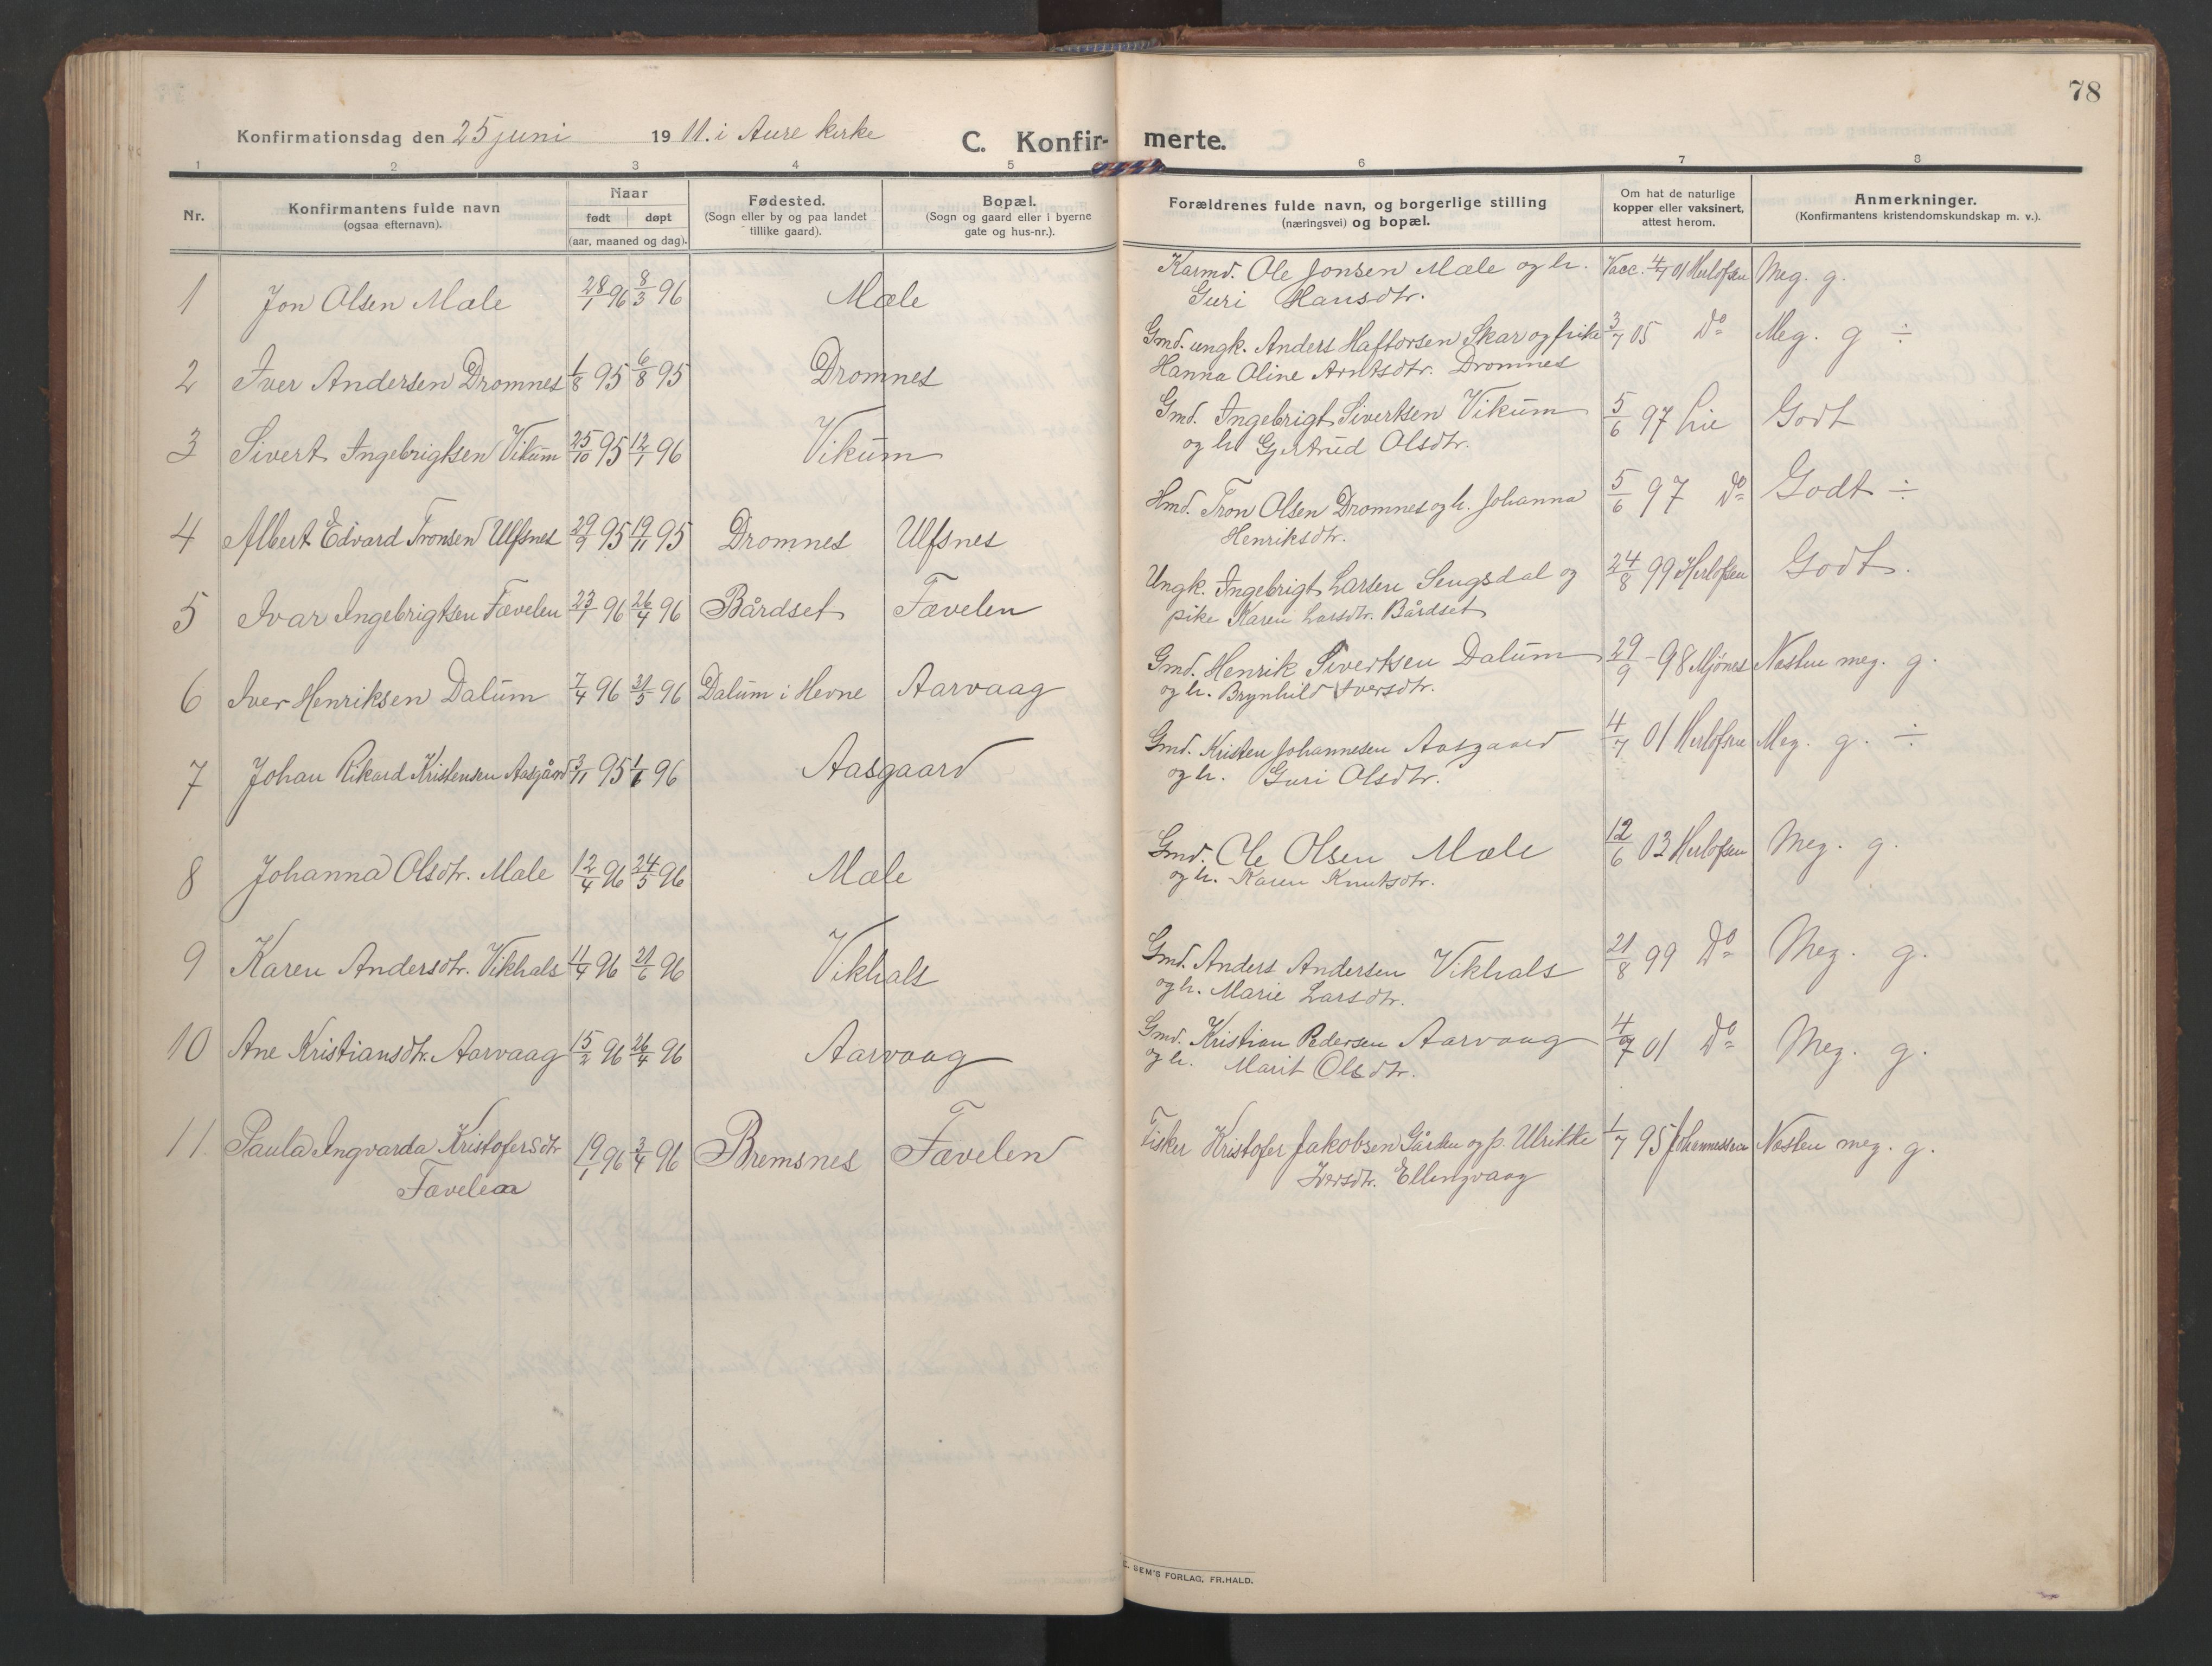 78
Konfirmationsdag den 25 juni 1911. i Aure kirke
C. Konfir- merte.
1 2 3 4 5 6 7 8
Nr.
Konfirmantens fulde navn
(ogsaa efternavn).
Naar
født døpt
(aar, maaned og dag).
Fødested.
(Sogn eller by og paa landet
tillike gaard).
Bopæl.
(Sogn og gaard eller i byerne
gate og hus-nr.).
Forældrenes fulde navn, og borgerlige stilling
(næringsvei) og bopæl.
Om hat de naturlige
kopper eller vaksinert,
attest herom.
Anmerkninger.
(Konfirmantens kristendomskundskap m. v.).
1 Jon Olsen Mæle 28/1 96 8/3 96 Mæle Karmd. Ole Jonsen Mæle og h. Vacc. 4/7 01 Herlofsen Meg. g.
Guri Hansdtr.
2 Iver Andersen Dromnes 1/8 95 6/8 95 Dromnes Gmd. ungk. Anders Haftorsen Skar og pike 3/7 05 Do Meg. g ÷
Hanna Oline Arntsdtr. Dromnes
3 Sivert Ingebrigtsen Vikum 25/10 95 12/1 96 Vikum Gmd. Ingebrigt Sivertsen Vikum 5/6 97 Lie Godt
og h. Gjertrud Olsdtr.
4 Albert Edvard Tronsen Ulfsnes 29/9 95 19/11 95 Dromnes Ulfsnes Hmd. Tron Olsen Dromnes og h. Johanna 5/6 97 Do Godt ÷
Henriksdtr.
5 Ivar Ingebrigtsen Fævelen 23/1 96 26/4 96 Bårdset Fævelen Ungk. Ingebrigt Larsen Sengsdal og 24/8 99 Herlofsen Godt.
pike Karen Larsdtr. Bårdset
6 Iver Henriksen Dalum 7/4 96 31/5 96 Dalum i Hevne Aarvaag Gmd. Henrik Sivertsen Dalum 29/9 - 98 Mjönes Næsten meg. g.
og h. Brynhild Iversdtr.
7 Johan Rikard Kristensen Aasgård 3/11 95 1/6 96 Aasgaard Gmd. Kristen Johannesen Aasgaard 4/7 01 Herlofsen Meg. g. ÷
og h. Guri Olsdtr.
8 Johanna Olsdtr. Mæle 12/4 96 24/5 96 Mæle Gmd. Ole Olsen Mæle 12/6 03 Herlofsen Meg. g.
og h. Karen Knutsdtr.
9 Karen Andersdtr. Vikhals 11/4 96 21/6 96 Vikhals Gmd. Anders Andersen Vikhals 21/8 99 Do Meg. g.
og h. Marie Larsdtr.
10 Ane Kristiansdtr. Aarvaag 15/2 96 26/4 96 Aarvaag Gmd. Kristian Pedersen Aarvaag 4/7 01 Do Meg. g.
og h. Marit Olsdtr.
11. Paula Ingvarda Kristofersdtr 19/1 96 3/4 96 Bremsnes Fævelen Fisker Kristofer Jakobsen Gården og p. Ulrikke 1/7 95 Johannessen Næsten meg. g.
Fævelen Iversdtr. Ellingvaag
BEM'S FORLAG, FR.HALD.